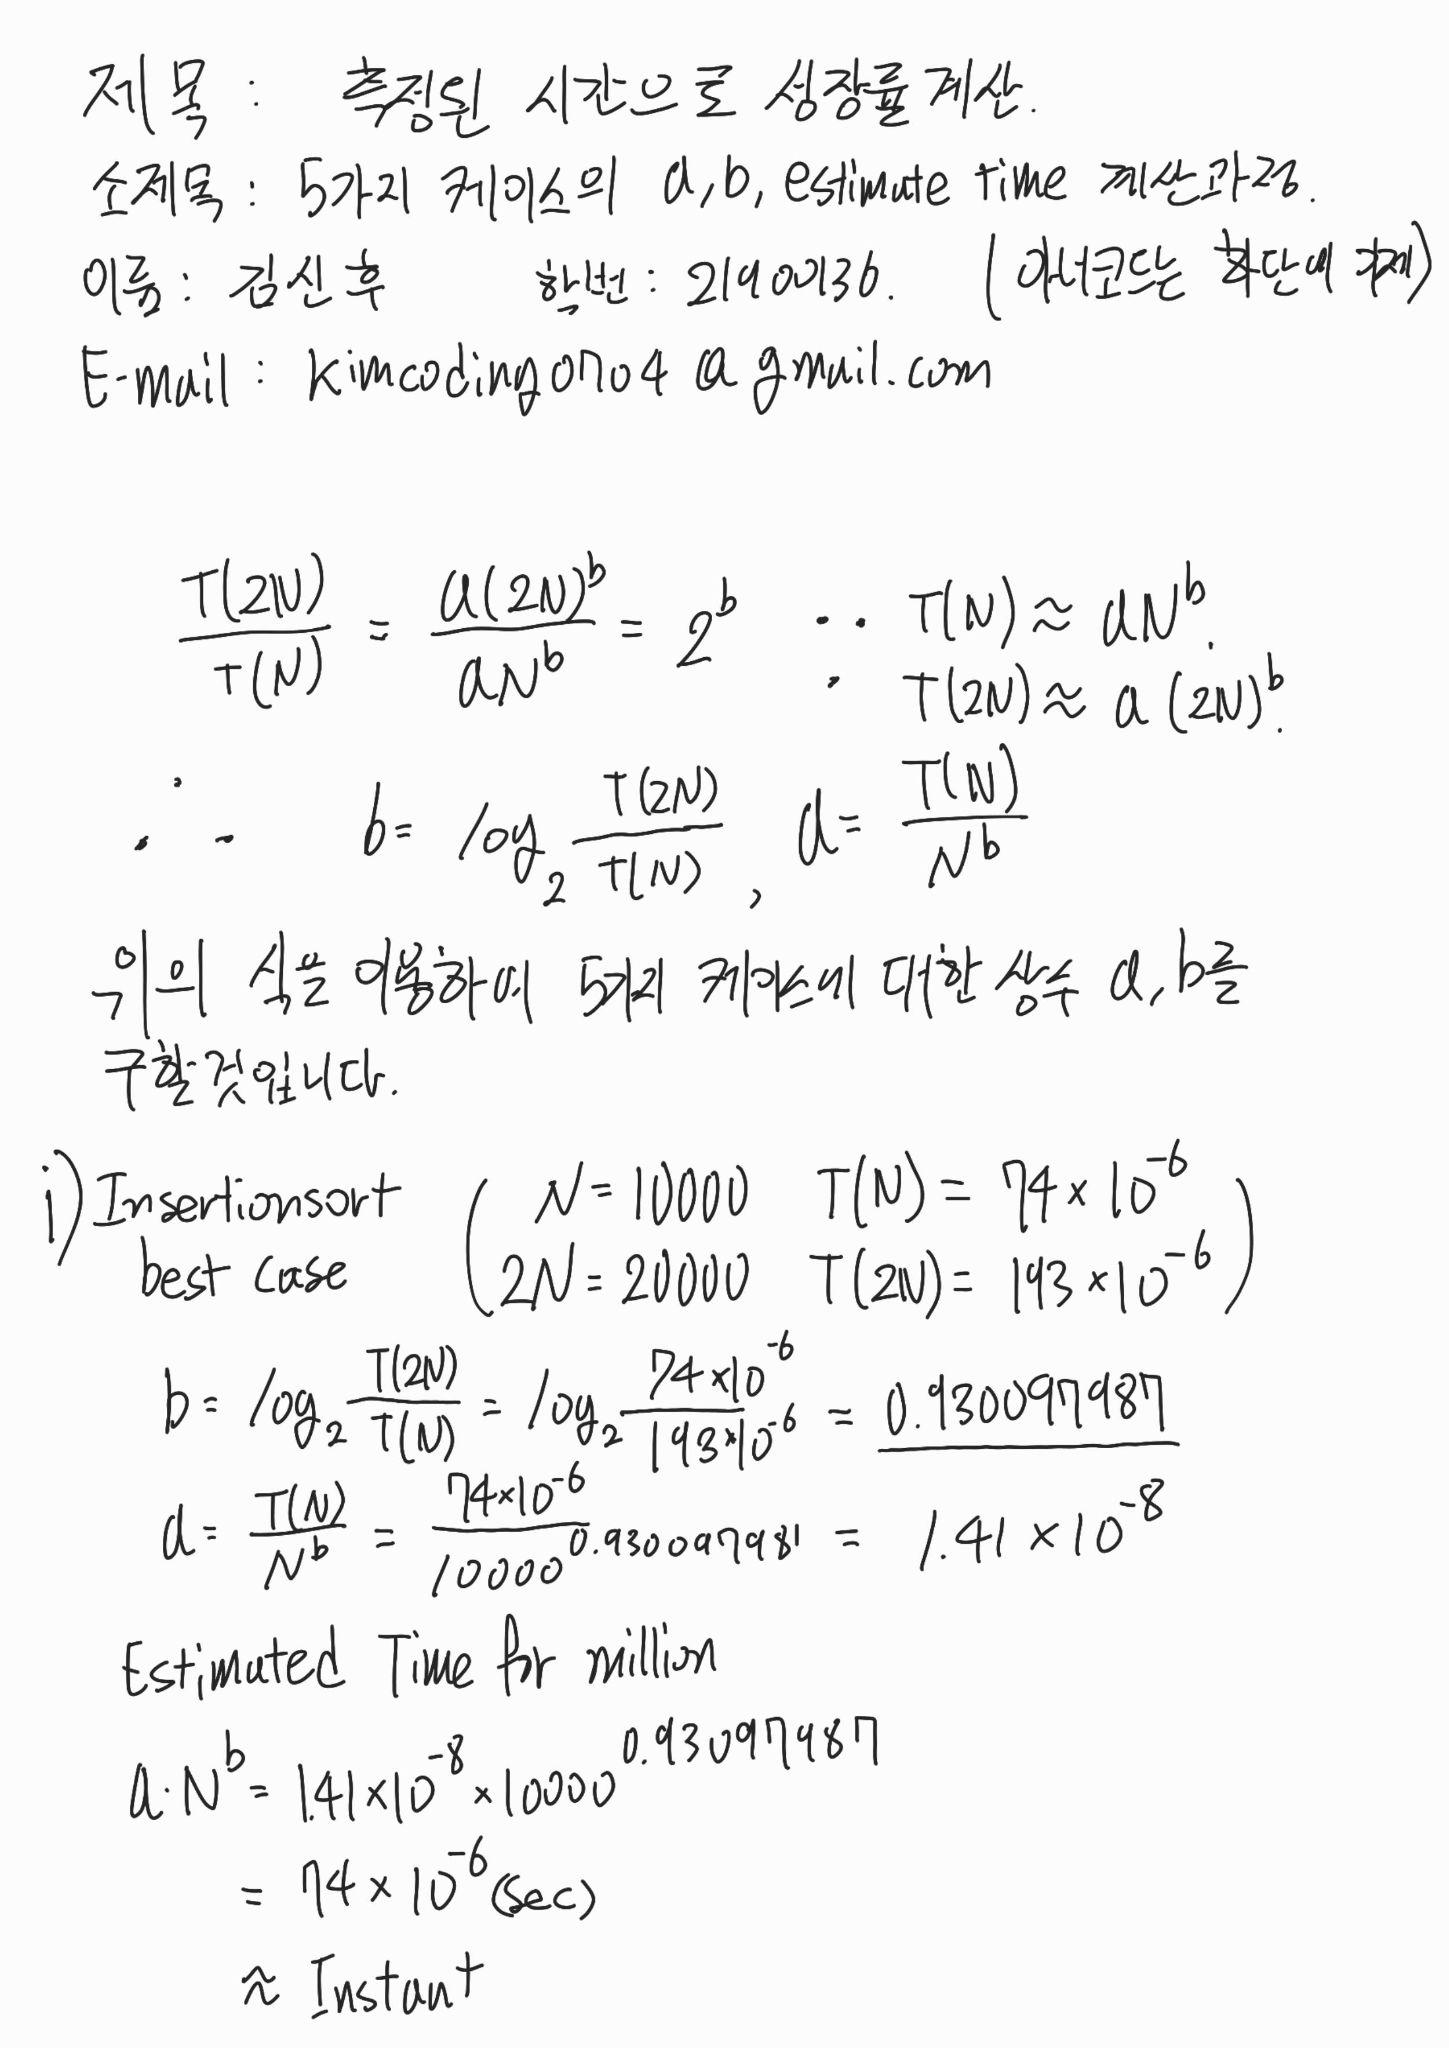 제목 : 측정된 시간으로 성장률 계산.
소제목 : 5가지 케이스의 a, b, estimate time 계산과정.
이름 : 김신후 학번 : 21900136. (아너코드는 하단에 기재)
E-mail : kimcoding0704@gmail.com
T(2N)/T(N) = a(2N)^b/aN^b = 2^b ∵ T(N) ≈ aN^b.
T(2N) ≈ a(2N)^b.
∴ b = log₂ T(2N)/T(N), a = T(N)/N^b
위의 식을 이용하여 5가지 케이스에 대한 상수 a, b를
구할것입니다.
i) Insertionsort best case (N = 10000 T(N) = 74×10^-6
2N = 20000 T(2N) = 193×10^-6)
b = log₂ T(2N)/T(N) = log₂ 74×10^-6/193×10^-6 = 0.930097987
a = T(N)/N^b = 74×10^-6/10000^0.930097981 = 1.41×10^-8
Estimated Time for million
a·N^b = 1.41×10^-8×10000^0.93097987
= 74×10^-6 (sec)
≈ Instant